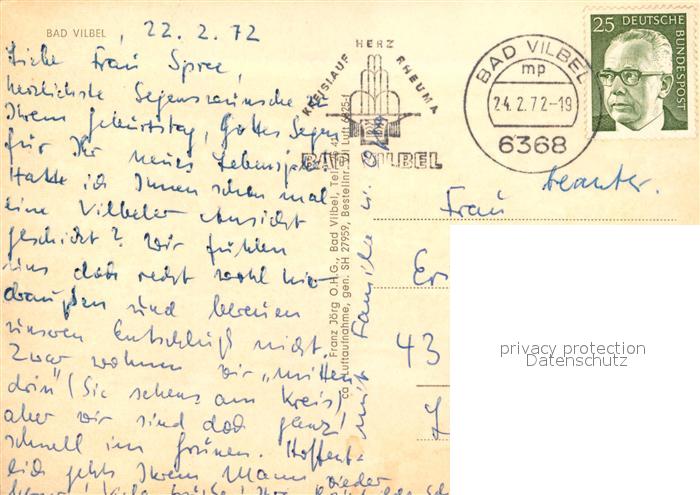 BAD VILBEL, 22.2.72
Liebe Frau Spree,
herzlichste Segenswünsche zu
Ihrem Geburtstag, Gottes Segen
für Ihr neues Lebensjahr.
Hatte ich Ihnen schon mal
eine Vilbeler Ansicht
geschickt? Wir fühlen
uns doch recht wohl hier
draußen und bereuen
unseren Entschluß nicht.
Zwar wohnen wir „mitten
drin" (Sie sehens am Kreis)
aber wir sind doch ganz
schnell im Grünen. Hoffent-
lich gehts Ihrem Mann wieder
mit Familie
KREISLAUF HERZ RHEUMA
BAD VILBEL
BAD VILBEL
mp
24.2.72-19
6368
25 DEUTSCHE
BUNDESPOST
Franz Jörg O.H.G., Bad Vilbel, Tel.
Luftaufnahme, gen. SH 27959, Bestellnr.
beantw.
Frau
Er
43
privacy protection
Datenschutz